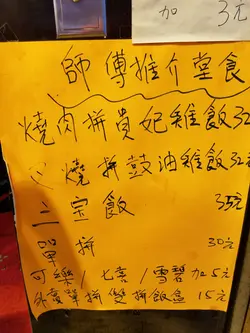 加 3元
師傅推介堂食
燒肉拼貴妃雞飯32
叉燒拼鼓油雞飯32
三宝飯 35元
單拼 30元
可樂/七喜/雪碧加5元
外賣單拼雙拼飯盒15元